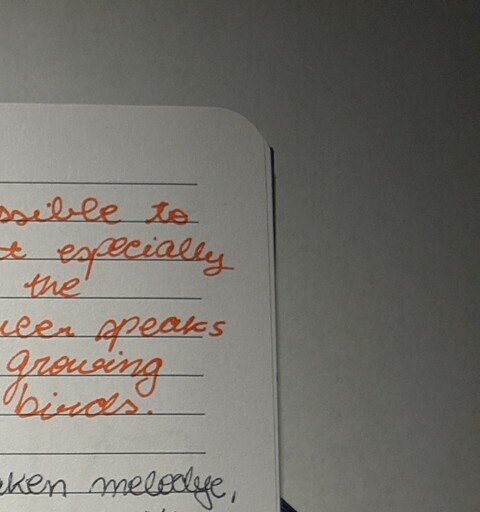 ssible to
t especially
the
ucer speaks
growing
birds.
aken melodye,